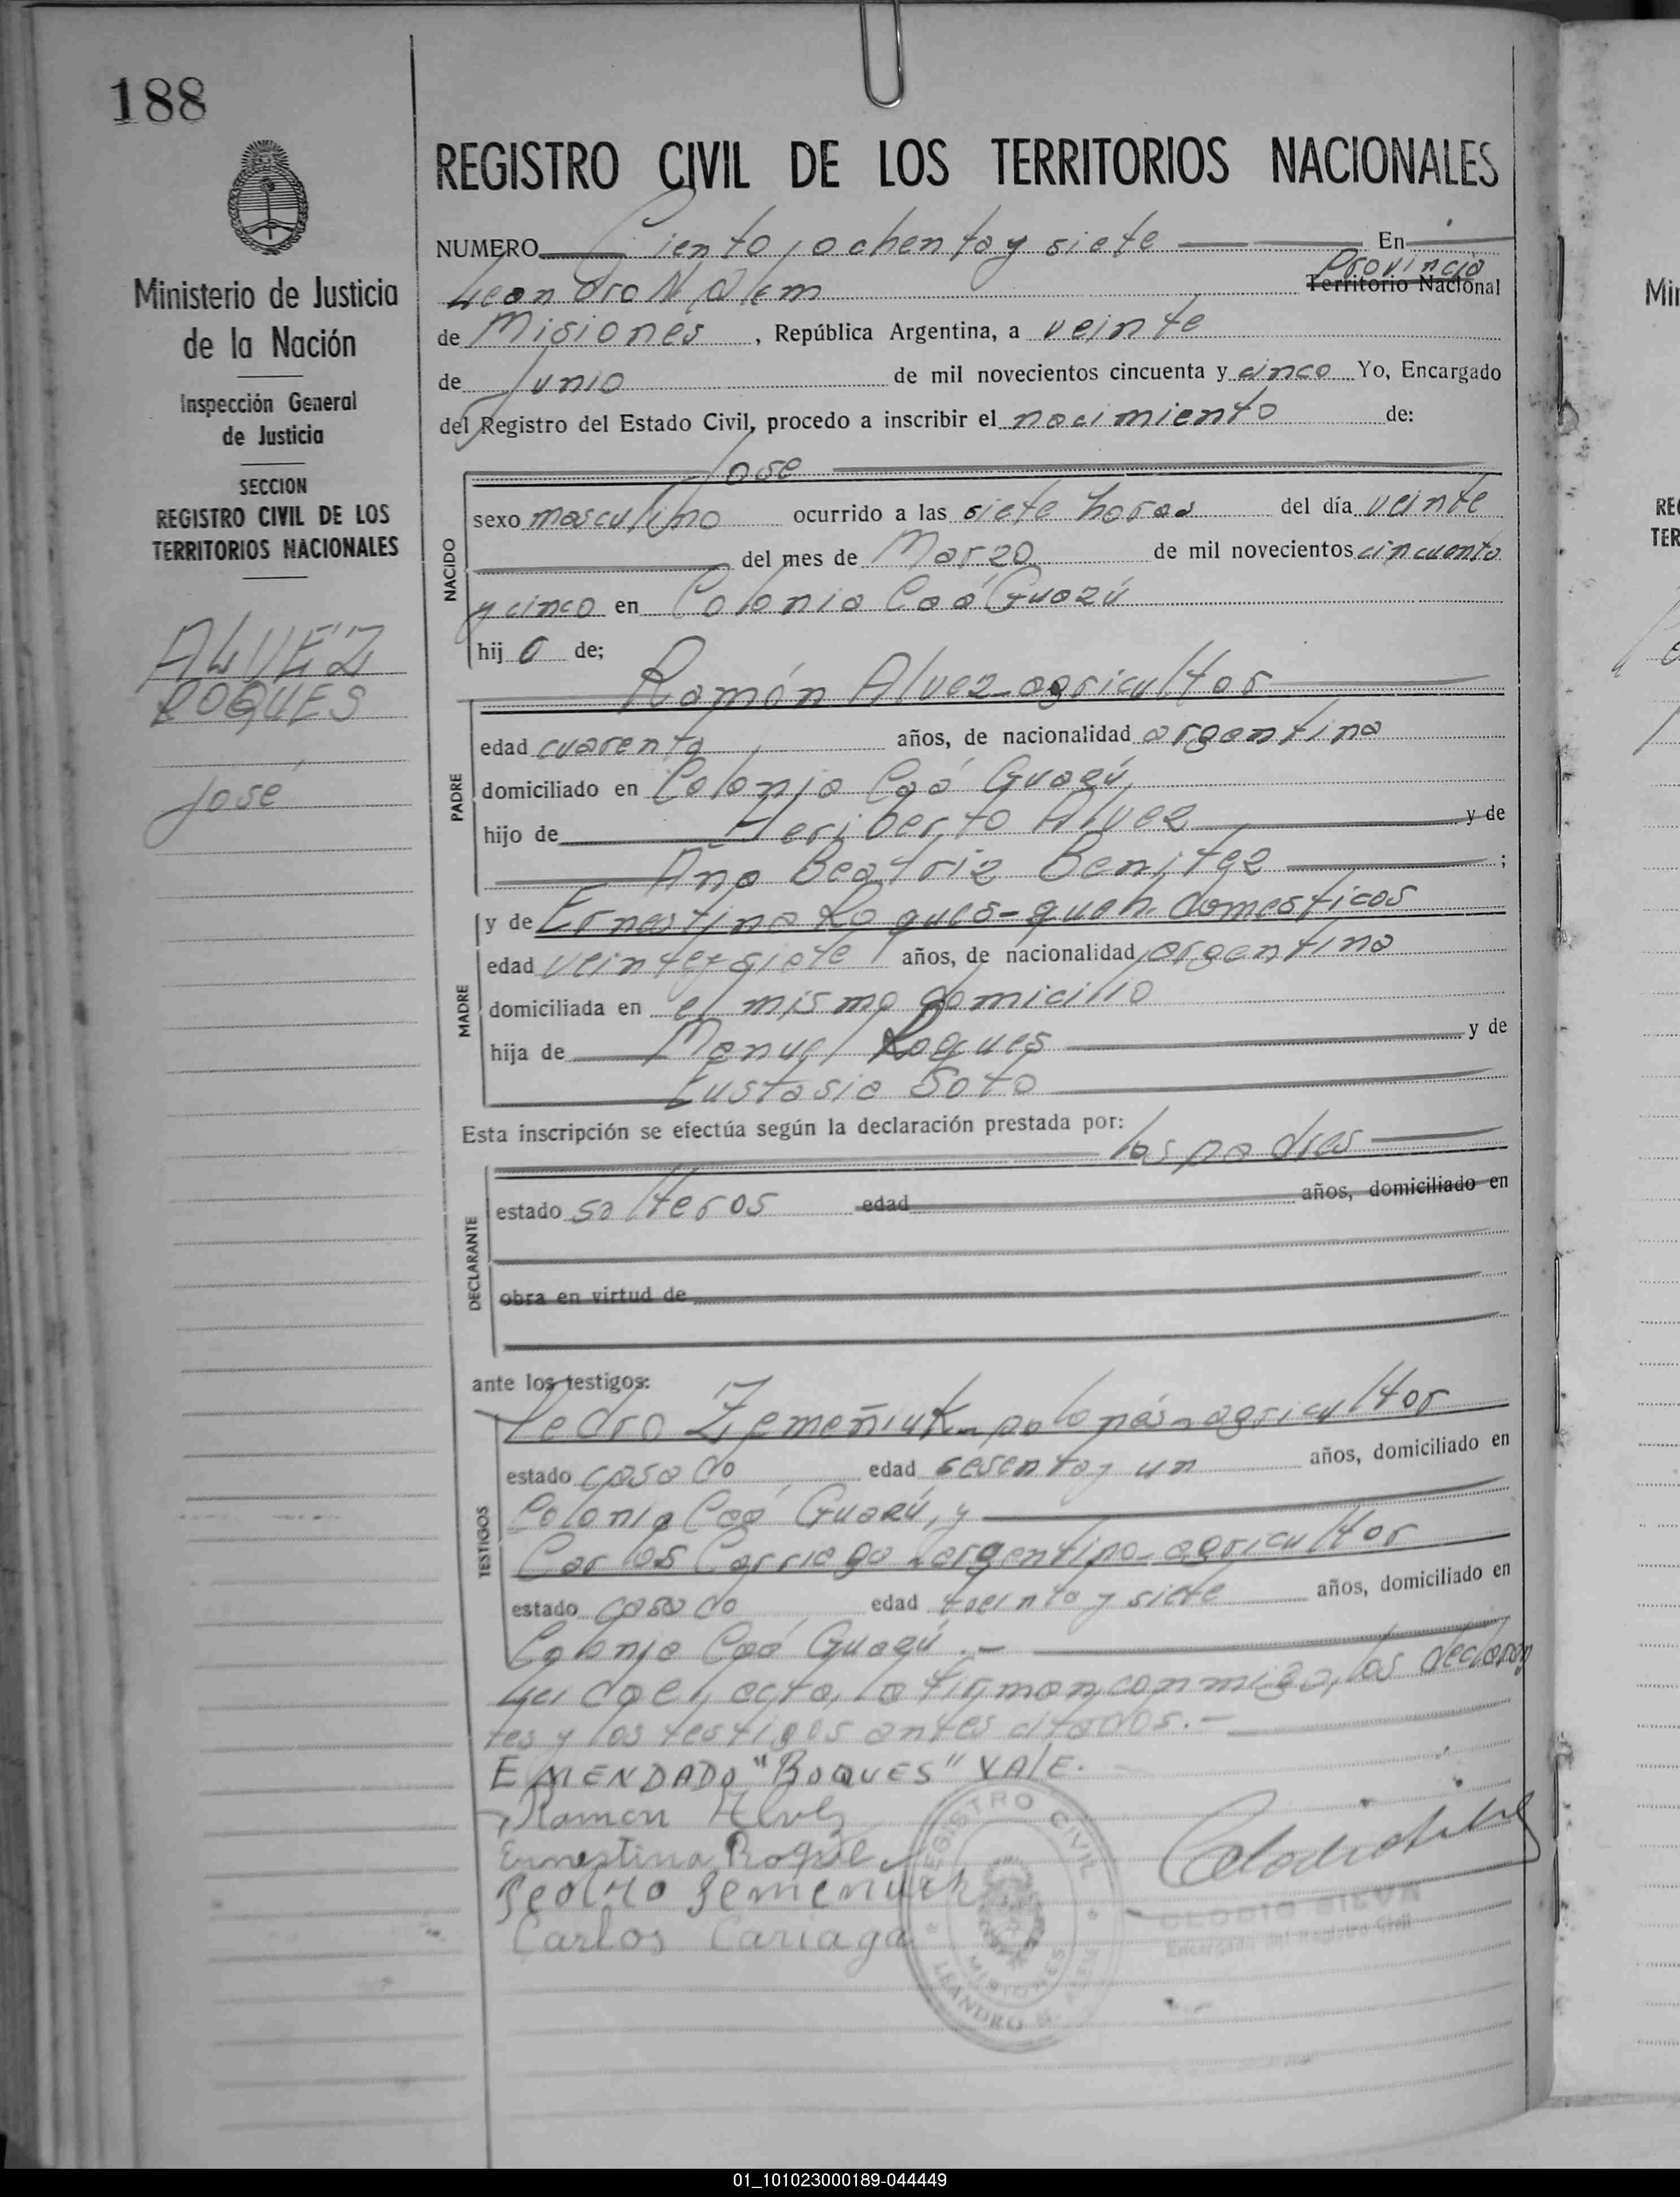 188
REGISTRO CIVIL DE LOS TERRITORIOS NACIONALES
Ministerio de Justicia
de la Nación
Inspección General
de Justicia
SECCION
REGISTRO CIVIL DE LOS
TERRITORIOS NACIONALES
ALVEZ
ROQUES
José
NUMERO Ciento ochenta y siete En
Leandro N Alem Provincia Territorio Nacional
de Misiones, República Argentina, a veinte
de Junio de mil novecientos cincuenta y cinco Yo, Encargado
del Registro del Estado Civil, procedo a inscribir el nacimiento de:
NACIDO
Jose
sexo masculino ocurrido a las siete horas del día veinte
del mes de Marzo de mil novecientos cincuenta
y cinco en Colonia Caá Guazú
hij o de;
PADRE
Ramón Alvez agricultor
edad cuarenta años, de nacionalidad argentina
domiciliado en Colonia Caá Guazú
hijo de Heriberto Alvez y de
Ana Beatriz Benitez ;
MADRE
y de Ernestina Roques - queh. domesticos
edad veinte y siete años, de nacionalidad argentina
domiciliada en el mismo domicilio
hija de Manuel Roques y de
Eustasia Soto
Esta inscripción se efectúa según la declaración prestada por:
DECLARANTE
los padres
estado solteros edad años, domiciliado en
obra en virtud de
ante los testigos:
TESTIGOS
Pedro Zemeñiuk - polonés - agricultor
estado casado edad sesenta y un años, domiciliado en
Colonia Caá Guazú, y
Carlos Carriago - argentino - agricultor
estado casado edad treinta y siete años, domiciliado en
Colonia Caá Guazú.-
Leida el acta, la firman conmigo, los declaran
tes y los testigos antes citados.-
EMENDADO "ROQUES" VALE.
Ramon Alvez
Ernestina Roque
Pedro Semeniuk
Carlos Cariaga
REGISTRO CIVIL
MISIONES
LEANDRO N. ALEM
CLODIO SILVA
Encargado del Registro Civil
01_101023000189-044449